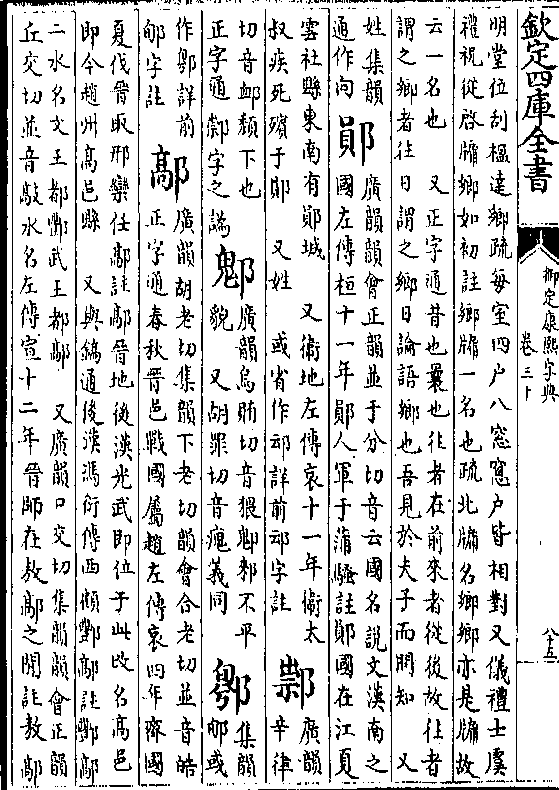 欽定四庫全書
御定康熙字典
卷三十
八十五
明堂位刮楹達鄉疏每室四户八窓窓户皆相對又儀禮士虞
禮祝從啓牖鄉如初註鄉牖一名也疏北牖名鄉鄉亦是牖故
云一名也　又正字通昔也曩也往者在前來者從後故往者
謂之鄉者往日謂之鄉日論語鄉也吾見於夫子而問知　又
姓集韻通作向
鄖
廣韻韻會正韻並于分切音云國名說文漢南之
國左傳桓十一年鄖人軍于蒲騷註鄖國在江夏
雲杜縣東南有鄖城　又衞地左傳哀十一年衞太
叔疾死殯于鄖　又姓　或省作䢵詳前䢵字註
𨞕
廣韻辛律
切音卹頹下也
正字通𨞕字之譌
䣀
廣韻烏賄切音猥䣀䣀不平
貌　又胡罪切音瘣義同
鄥
集韻
郇或
作鄥詳前
郇字註
鄗
廣韻胡老切集韻下老切韻會合老切並音皓
正字通春秋晉邑戰國屬趙左傳哀四年齊國
夏伐晉取邢欒任鄗註鄗晉地後漢光武即位于此改名高邑
即今趙州高邑縣　又與鎬通後漢馮衍傳西顧酆鄗註酆鄗
二水名文王都酆武王都鄗　又廣韻口交切集韻韻會正韻
丘交切並音敲水名左傳宣十二年晉師在敖鄗之閒註敖鄗